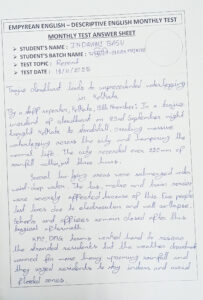 EMPYREAN ENGLISH – DESCRIPTIVE ENGLISH MONTHLY TEST
MONTHLY TEST ANSWER SHEET
➤ STUDENT'S NAME : INDRANIL BASU
➤ STUDENT'S BATCH NAME :
➤ TEST TOPIC : Report
➤ TEST DATE :
Tragic cloudburst leads to unprecedented waterlogging
in Kolkata
By a staff reporter, Kolkata, 25th November: In a tragic
incident of cloudburst on 23rd September night
brought Kolkata to standstill, creating massive
waterlogging across the city and hampering the
normal life. The city recorded over 250 mm of
rainfall within just three hours.
Several low lying areas were submerged under
waist-deep water. The bus, metro and train services
were severely affected because of this. Few people
lost lives due to electrocution and wall collapse.
Schools and offices remain closed after this
tragical aftermath.
teams worked hard to rescue
the stranded residents but the weather department
warned for more heavy upcoming rainfall and
they urged residents to stay indoors and avoid
flooded zones.